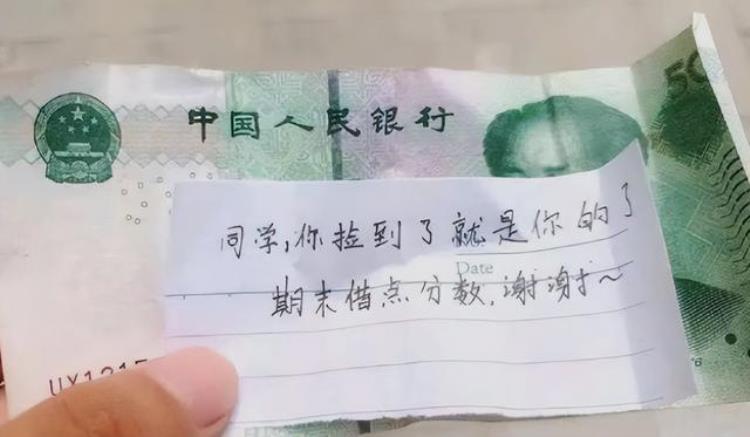 中国人民银行
50
同学,你捡到了就是你的了
Date
期末借点分数,谢谢~